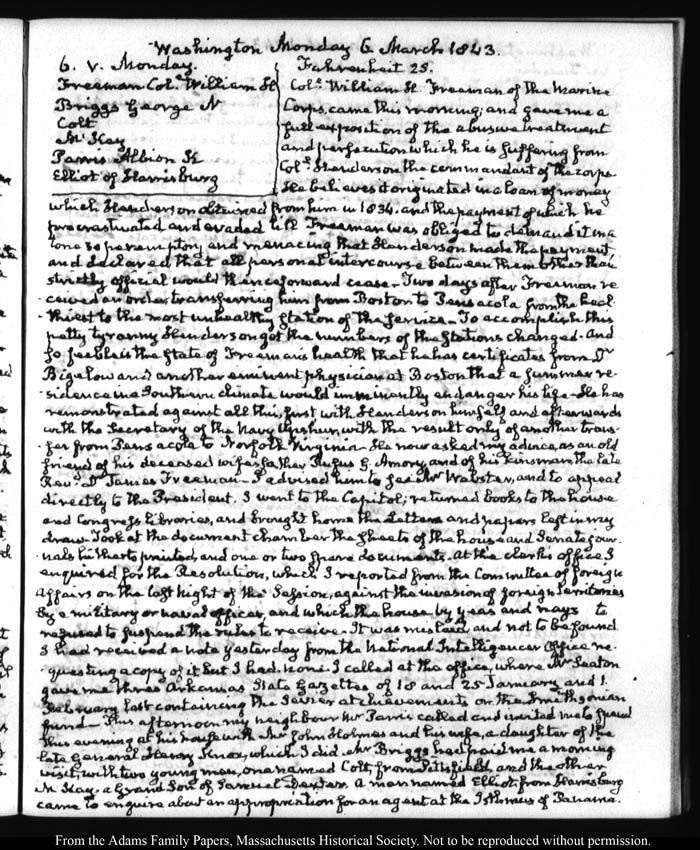 Washington Monday 6 March 1843.
6. V. Monday.
Freeman Col.l William H
Briggs George N
Colt
McKay
Parris Albion K
Elliot of Harrisburg
Fahrenheit 25.
Col.l William H. Freeman of the Marine
Corps, came this morning; and gave me a
full exposition of the abusive treatment
and persecution which he is suffering from
Col.l Henderson the commandant of the corps.
He believes it originated in a loan of money
which Henderson obtained from him in 1834. and the payment of which he
procrastinated and evaded till Freeman was obliged to demand it in a
tone so peremptory and menacing that Henderson made the payment,
and declared that all personal intercourse between them other than
strictly official would thenceforward cease. Two days after Freeman re-
ceived an order transferring him from Boston to Pensacola from the heal-
thiest to the most unhealthy Station of the Service. To accomplish this
petty tyranny Henderson got the numbers of the Stations changed. And
so feeble is the State of Freeman's health that he has certificates from Dr
Bigelow and another eminent physician at Boston that a summer re-
sidence in a Southern climate would imminently endanger his life. He has
remonstrated against all this, first with Henderson himself and afterwards
with the Secretary of the Navy Upshur, with the result only of another trans-
fer from Pensacola to Norfolk Virginia. He now asked my advice, as an old
friend of his deceased wife's father Rufus G. Amory, and of his kinsman the late
Revd. Dr James Freeman. I advised him to see Mr Webster, and to appeal
directly to the President. I went to the Capitol; returned books to the house
and Congress libraries, and brought home the Letters and papers left in my
draw. Took at the document chamber the sheets of the house and Senate jour-
nals hitherto printed, and one or two spare documents. At the clerk's office I
enquired for the Resolution, which I reported from the Committee of foreign
Affairs on the last night of the Session, against the invasion of foreign territories
by a military or naval officer, and which the house by yeas and nays to
refused to suspend the rules to receive. It was mislaid, and not to be found
I had received a note yesterday from the National Intelligencer Office re-
questing a copy of it but I had none. I called at the office, where Mr Seaton
gave me three Arkansas State Gazettes of 18 and 25 January and 1.
February last containing the Sevier atchievements on the Smithsonian
fund. This afternoon my neighbour Mr Parris called and invited me to spend
this evening at his house with Mr John Holmes and his wife, a daughter of the
late General Henry Knox, which I did. Mr Briggs had paid me a morning
visit, with two young men, one named Colt, from Pittsfield, and the other
McKay, a Grand Son of Samuel Dexter. A man named Elliot, from Harrisburg
came to enquire about an appropriation for an agent at the Isthmus of Panama.
From the Adams Family Papers, Massachusetts Historical Society. Not to be reproduced without permission.